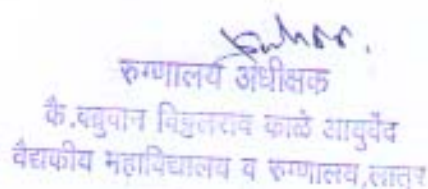 रुग्णालय अधीक्षक
कै.बब्रुवान विठ्ठलराव काळे आयुर्वेद
वैद्यकीय महाविद्यालय व रुग्णालय,लातूर